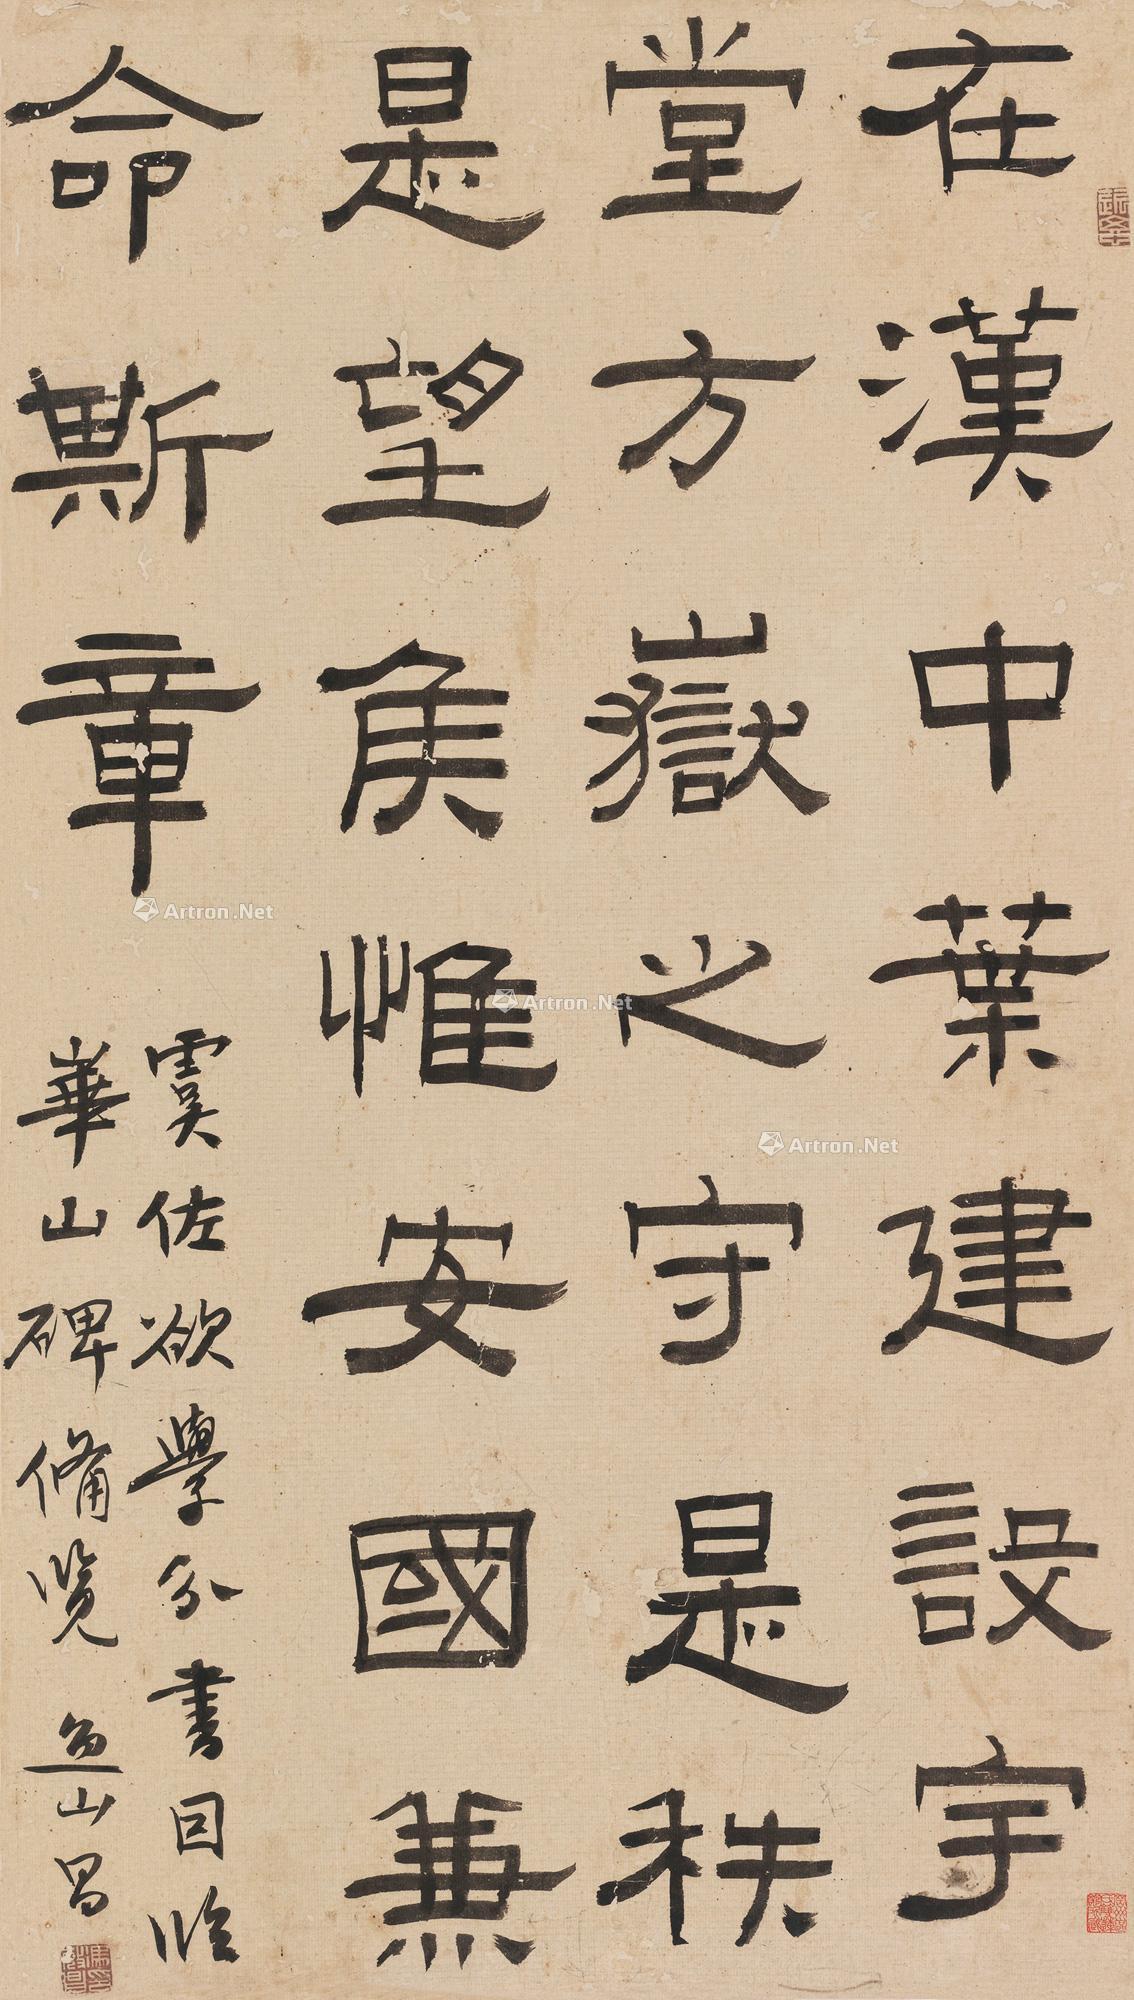 在漢中葉建設宇
堂方嶽之守是秩
是望侯惟安國兼
命斯章
虞佐欲學分書因臨
華山碑備覽 魚山昌
Artron.Net
Artron.Net
Artron.Net